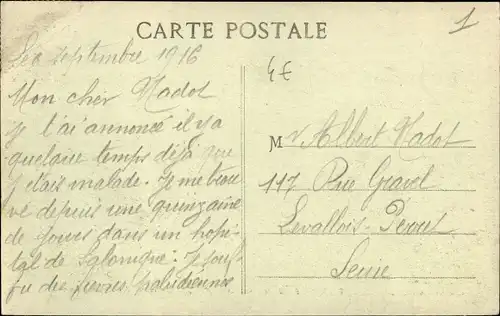 CARTE POSTALE
1
septembre 1916
4€
Mon cher Nadot
je t'ai annoncé il y a
quelque temps déjà que
j'étais malade. Je me trou
ve depuis une quinzaine
de jours dans un hopi-
tal de Salonique. Je
fièvres paludéennes
Mr Albert Nadot
117 Rue Gravel
Levallois-Perret
Seine